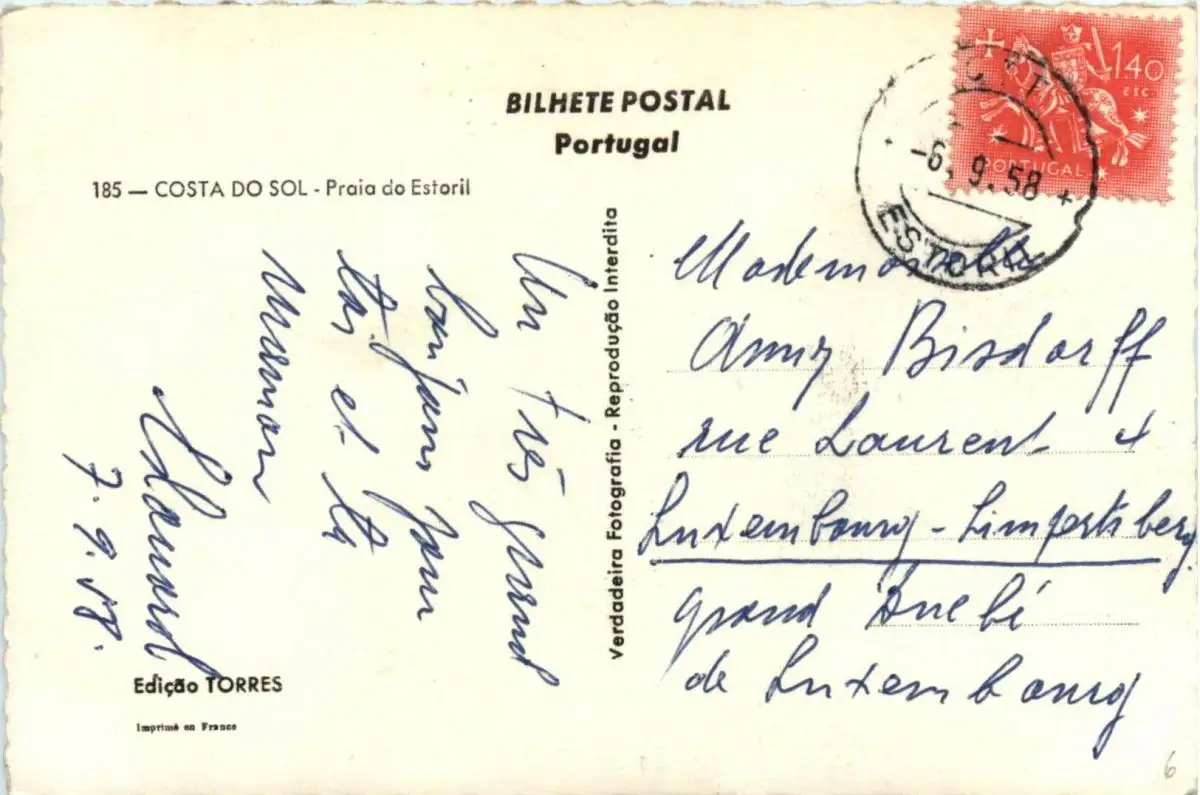 BILHETE POSTAL
Portugal
185 — COSTA DO SOL - Praia do Estoril
140
ESC.
PORTUGAL
-6. 9. 58
ESTORIL
Un très grand
bonjour pour
toi et ta
maman
7.9.58.
Verdadeira Fotografia - Reprodução Interdita
Mademoiselle
Anny Bisdorff
rue Laurent 4
Luxembourg - Limpertsberg
grand Duché
de Luxembourg
Edição TORRES
Imprimé en France
6